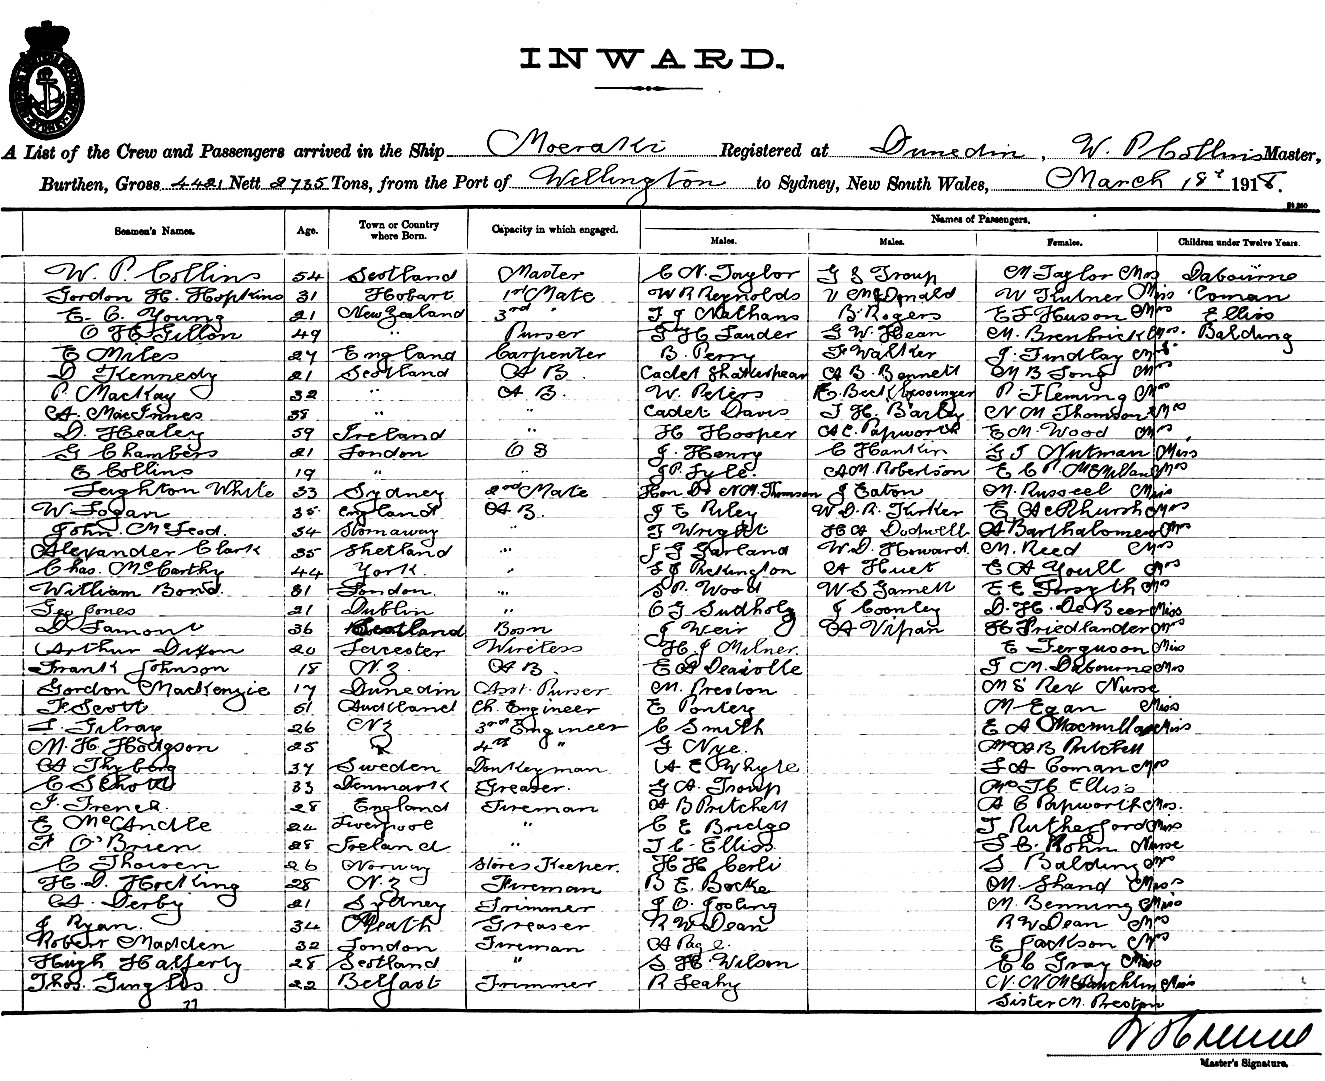 INWARD.
A List of the Crew and Passengers arrived in the Ship Moeraki Registered at Dunedin, W. P. Collins Master,
Burthen, Gross 4421 Nett 2735 Tons, from the Port of Wellington to Sydney, New South Wales, March 18th 1918.
Seamen's Names. Age. Town or Country where Born. Capacity in which engaged. Names of Passengers.
Males. Males. Females. Children under Twelve Years.
W. P. Collins 54 Scotland Master C N. Taylor G S Troup M Taylor Mrs Dabourne
Gordon H. Hopkins 31 Hobart 1st Mate W R Reynolds V McDonald W Miss Coman
E. C. Young 21 New Zealand 3rd " T J Nathans B Rogers E F Huson Mrs Ellis
O H Gillon 49 " Purser G H Lauder G W Hean M. Mrs. Balding
E Miles 27 England Carpenter B. Perry F Walker J. Findlay Mrs
D Kennedy 21 Scotland A B. Cadet Shakespear A B. Bennett M B Long Mrs
P. MacKay 32 " A B. W. Peters P. Fleming Mrs
A. MacInnes 38 " " Cadet Davis J H. Barley N M Thomson Mrs
D. Healey 59 Ireland " H Hooper A C. Papworth E M. Wood Mrs
G Chambers 21 London O S J. Henry C Hankin G J Nutman Miss
E Collins 19 " " J P. Lyle A M. Robertson E C P. McMillan Mrs
Leighton White 33 Sydney 2nd Mate Hon Dr N M. Thomson J Eaton M. Russell Miss
W Logan 35 England A B. J E Riley W D. R. E Mrs
John McLeod. 54 Stornaway " T Wright H A Dodwell A Bartholomew Mrs
Alexander Clark 35 Shetland " J G Garland W. D. Howard. M. Reed Mrs
Chas. McCarthy 44 York. " S E Pickington A Huet E A Youll Mrs
William Bond. 31 London. " S P. Wood W S Gamell E E Forsyth Mrs
Geo Jones 21 Dublin " C G Sudholz J Coonley D. H. De Beer Miss
D Lamont 36 Scotland Bosn J Weir A Vipan H Friedlander Mrs
Arthur Dixon 20 Leicester Wireless H. J Milner. E Ferguson Miss
Frank Johnson 18 N. Z. A B. E A Deavolle T M. Dabourne Mrs
Gordon MacKenzie 17 Dunedin Asst. Purser M. Preston M S Rex Nurse
F. Scott 51 Auckland Ch. Engineer E Ponley M Egan Miss
I. Gilray 26 N Z 3rd Engineer C Smith E A Macmillan Miss
M. H. Hodgson 25 4th " G Nye. A B Pritchett
A Thyberg 37 Sweden Donkeyman A E Whyte L A Coman Mrs
C Schott 33 Denmark Greaser. G A. Troup Mrs J C Ellis
J. French. 28 England Fireman A B Pritchett A C Papworth Mrs.
E McArdle 24 Liverpool " C E Bridge J Rutherford Miss
F O'Brien 28 Ireland " J C. Ellis L C. Rohn Nurse
C Thoisen 26 Norway Stores Keeper. H H Cerli S Balding Mrs
H. D. Hocking 28 N. Z Fireman B E. Bocke M. Shand Miss
A. Derby 21 Sydney Trimmer J O. Gooling M. Benning Miss
J Ryan. 34 Meath Greaser R W Dean R W Dean Mrs
Robert Madden 32 London Fireman A Page. E Jackson Mrs
Hugh Hafferty 28 Scotland " S H. Wilson E C Gray Miss
Thos. Tingles 22 Belfast Trimmer R Leahy V. N McLauchlin Miss
37 Sister M. Preston
Master's Signature.